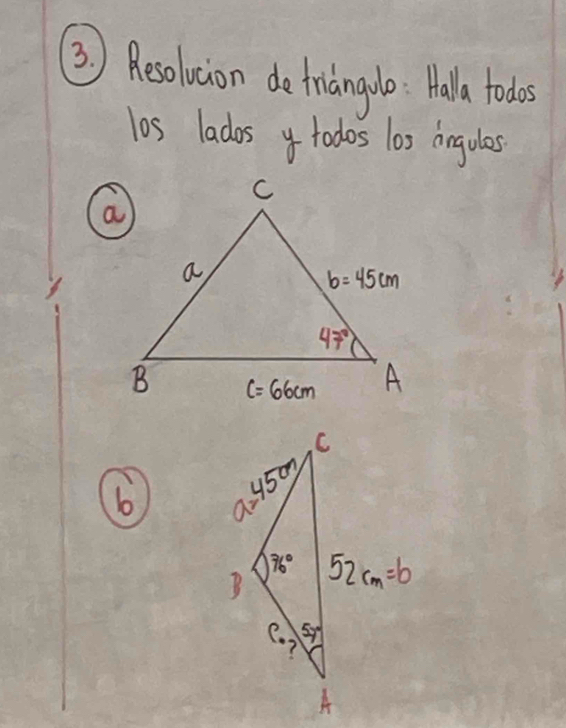 3. Resolucion de triángulo: Halla todos
los lados y todos los ángulos.
a
C
a
b = 45 cm
47°
B
A
C = 66cm
b
C
a = 45 cm
76°
52 cm = b
B
57°
A